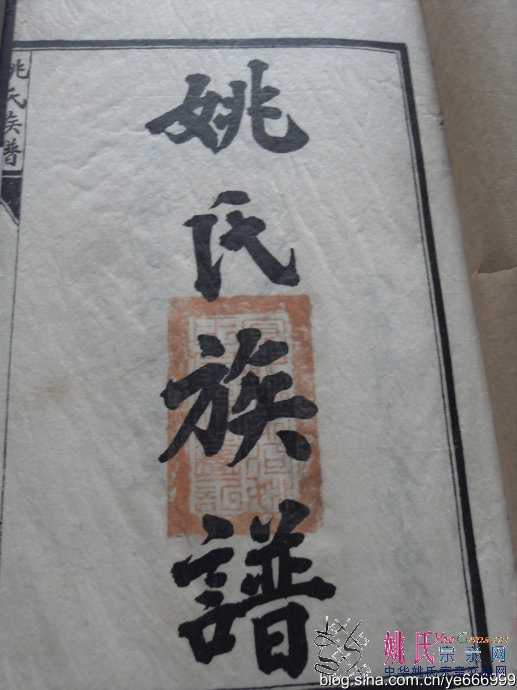 姚氏族譜
姚氏族譜
姚氏
宗亲网
中华姚氏宗亲交流网
blog.sina.com.cn/ye666999